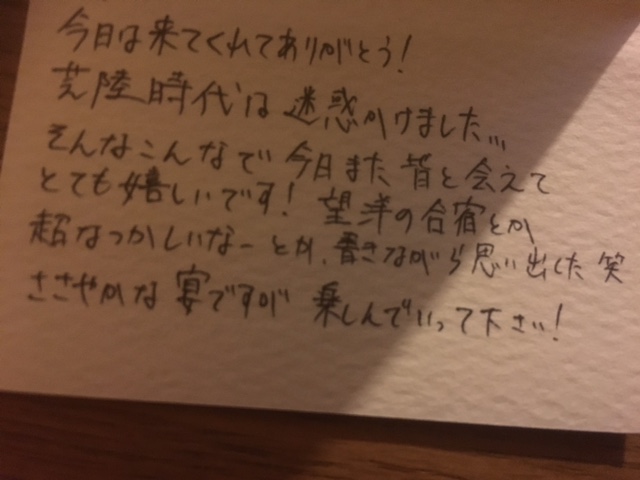 今日は来てくれてありがとう!
芸陸時代は迷惑かけました、、、
そんなこんなで今日また皆と会えて
とても嬉しいです! 望洋の合宿とか
超なつかしいなーとか、書きながら思い出した笑
ささやかな宴ですが 楽しんでいって下さい!